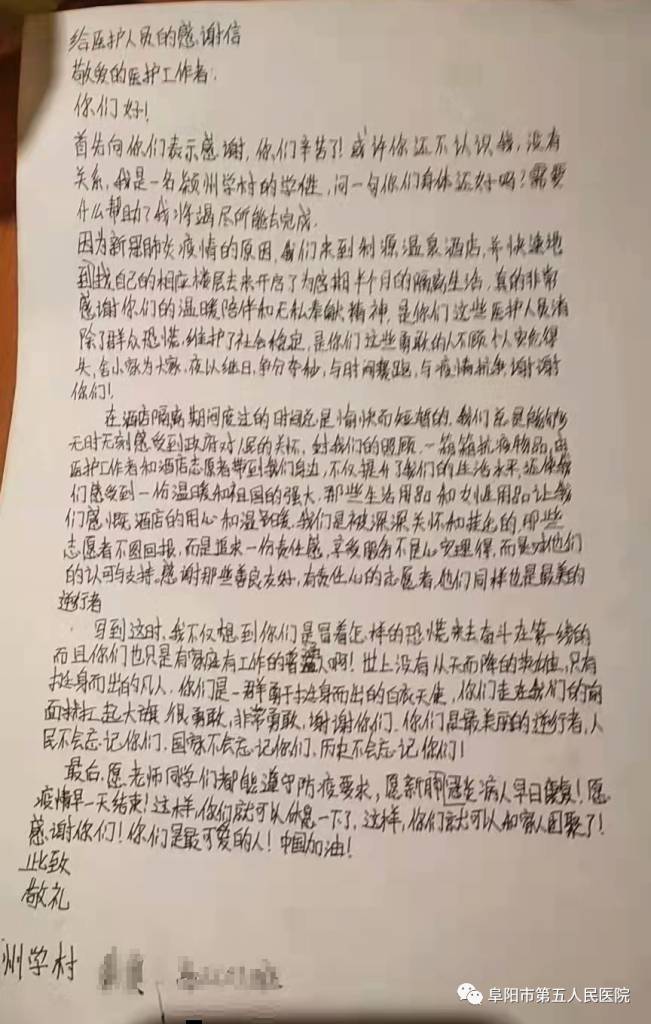 给医护人员的感谢信
敬爱的医护工作者:
你们好!
首先向你们表示感谢,你们辛苦了!或许你还不认识我,没有
关系,我是一名颍州学村的学生,问一句你们身体还好吗?需要
什么帮助?我将竭尽所能去完成.
因为新冠肺炎疫情的原因,我们来到利源温泉酒店,并快速地
到找自己的相应楼层去来开启了为感期半个月的隔离生活,真的非常
感谢你们的温暖陪伴和无私奉献精神,是你们这些医护人员消
除了群众恐慌,维护了社会稳定,是你们这些勇敢的人不顾个人安危得
失,舍小家为大家,夜以继日,争分夺秒,与时间赛跑,与疫情抗争,谢谢
你们!
在酒店隔离期间度过的时间总是愉快而短暂的,我们总是能够
无时无刻感受到政府对人民的关怀,对我们的照顾,一箱箱抗疫物品,由
医护工作者和酒店志愿者带到我们身边,不仅提升了我们的生活水平,还使我
们感受到一份温暖和祖国的强大,那些生活用品和女性用品让我
们感慨酒店的用心和温暖,我们是被深深关怀和挂念的,那些
志愿者不图回报,而是追求一份责任感,享受服务不是心安理得,而是对他们
的认可与支持.感谢那些善良友好,有责任心的志愿者,他们同样也是最美的
逆行者
写到这时,我不仅想到你们是冒着怎样的恐慌来去奋斗在第一线的
而且你们也只是有家庭有工作的普通人啊!世上没有从天而降的英雄,只有
挺身而出的凡人,你们是一群勇于挺身而出的白衣天使,你们走在我们的前
面扛起大旗,很勇敢,非常勇敢,谢谢你们.你们是最美丽的逆行者,人
民不会忘记你们,国家不会忘记你们,历史不会忘记你们!
最后,愿老师同学们都能遵守防疫要求,愿新冠肺炎病人早日康复!愿
疫情早一天结束!这样,你们就可以休息一下了,这样,你们就可以和家人团聚了!
感谢你们!你们是最可爱的人!中国加油!
此致
敬礼
州学村
阜阳市第五人民医院